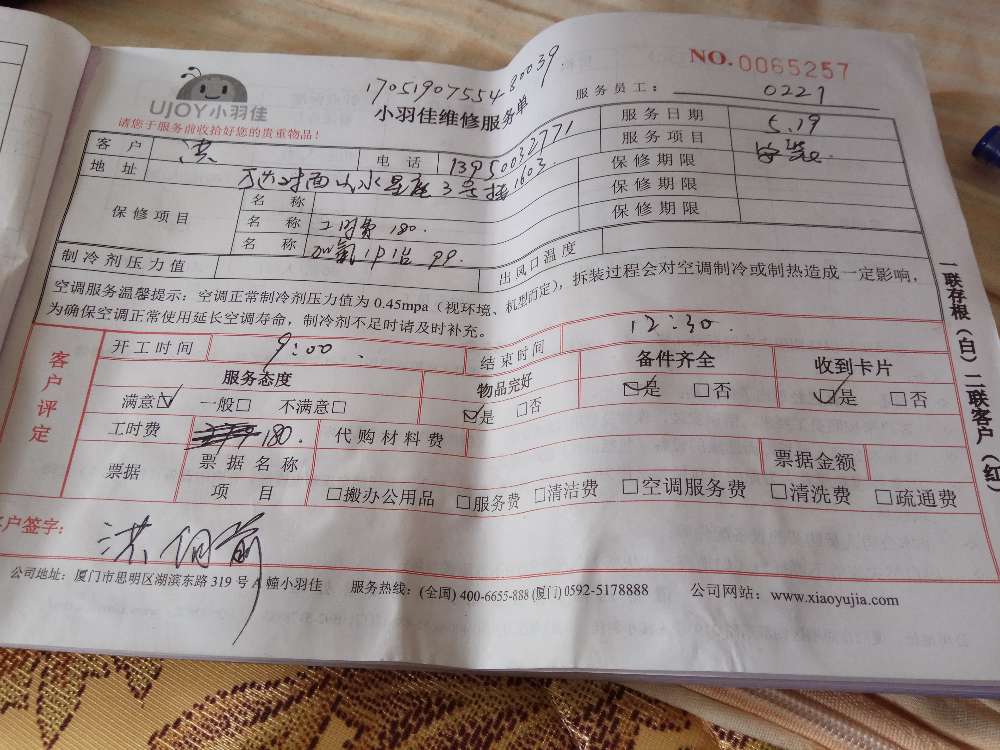 NO.0065257
1705190755480039
UJOY小羽佳
小羽佳维修服务单
服务员工： 0221
请您于服务前收拾好您的贵重物品！
客户 洪 电话 13950032771 服务日期 5.19
地址 万达对面山水星座3号楼1603 服务项目 安装
保修期限
保修项目 名称 保修期限
名称 工时费 180. 保修期限
名称 加氟1P治 99.
制冷剂压力值 出风口温度
空调服务温馨提示：空调正常制冷剂压力值为0.45mpa（视环境、机型而定），拆装过程会对空调制冷或制热造成一定影响，
为确保空调正常使用延长空调寿命，制冷剂不足时请及时补充。
客户评定
开工时间 9:00 结束时间 12:30.
服务态度 物品完好 备件齐全 收到卡片
满意☑ 一般□ 不满意□ ☑是 □否 ☑是 □否 ☑是 □否
工时费 180. 代购材料费
票据 票据名称 票据金额
项目 □搬办公用品 □服务费 □清洁费 □空调服务费 □清洗费 □疏通费
客户签字:
公司地址：厦门市思明区湖滨东路319号A幢小羽佳 服务热线：(全国) 400-6655-888 (厦门) 0592-5178888 公司网站：www.xiaoyujia.com
一联存根（白）二联客户（红）